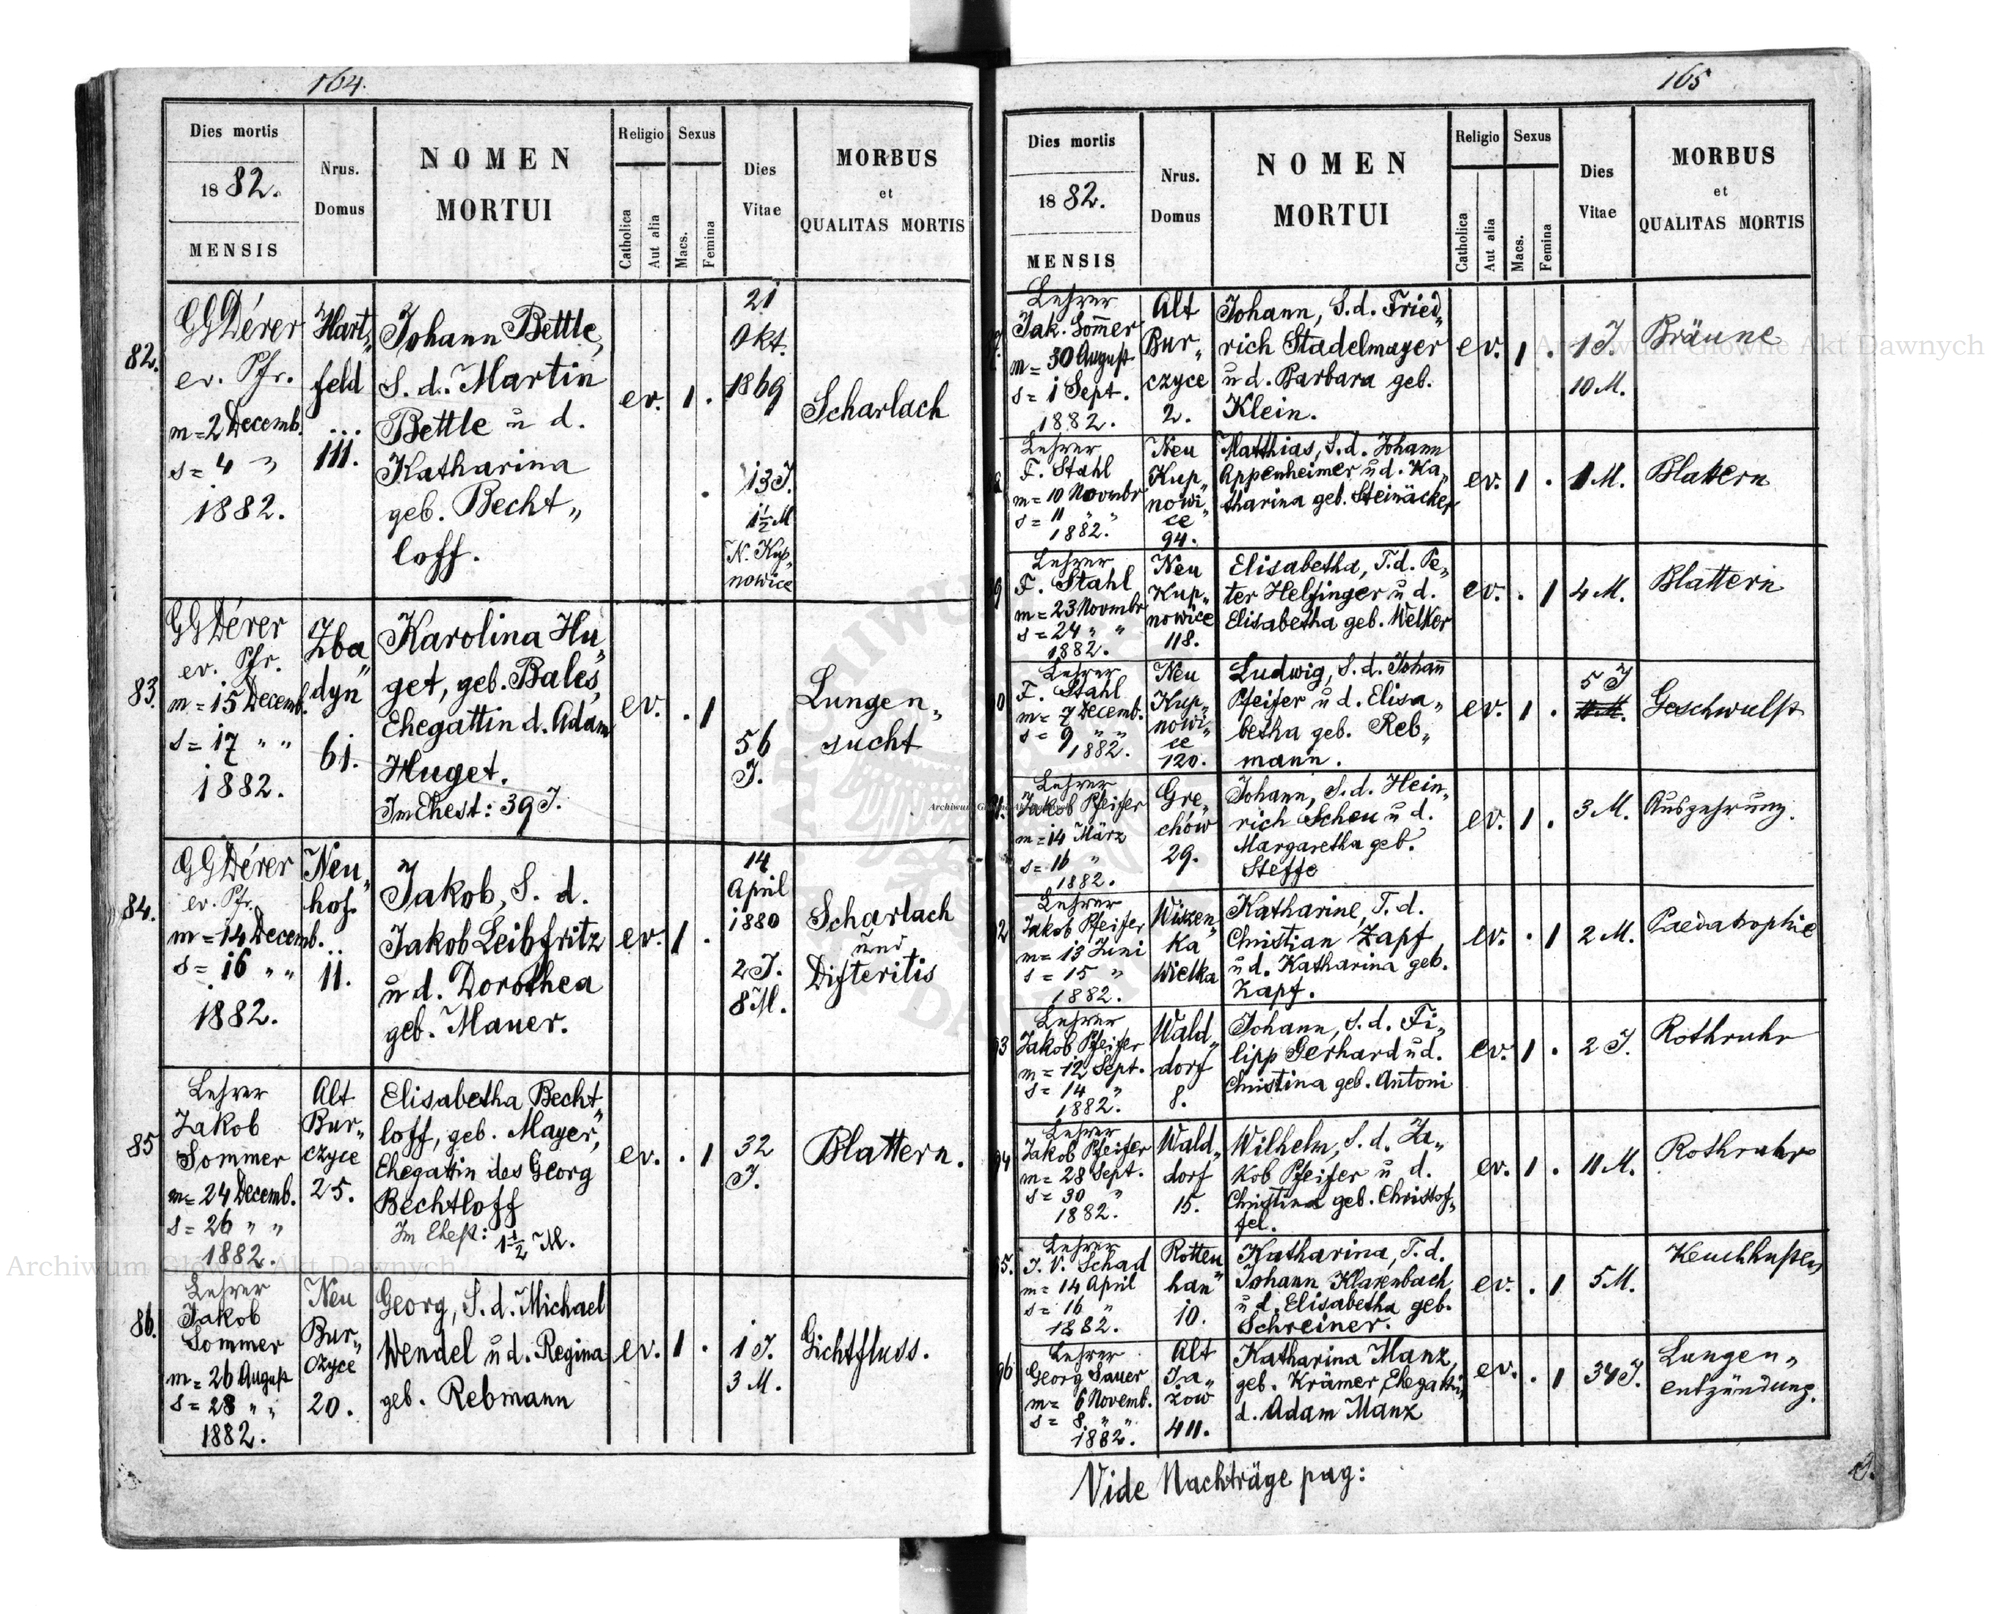 164.
Dies mortis
1882.
MENSIS
Nrus.
Domus
NOMEN
MORTUI
Religio
Catholica
Aut alia
Sexus
Macs.
Femina
Dies
Vitae
MORBUS
et
QUALITAS MORTIS
82.
GGDérer
ev. Pfr.
m = 2 Decemb.
s = 4 "
1882.
Hart„
feld
...
111.
Johann Bettle,
S. d. Martin
Bettle u d.
Katharina
geb. Becht„
loff.
ev.
1 .
21
Okt.
1869
13 J.
1½ M
N. Kup„
nowice
Scharlach
83.
GGDérer
ev. Pfr.
m = 15 Decemb.
s = 17 " "
1882.
Zba„
dyn
61.
Karolina Hu„
get, geb. Bales,
Ehegattin d. Adam
Huget.
Im Ehest: 39 J.
ev.
. 1
56
J.
Lungen„
sucht
84.
GGDérer
ev. Pfr.
m = 14 Decemb.
s = 16 " "
1882.
Neu„
hof
..
11.
Jakob, S. d.
Jakob Leibfritz
u d. Dorothea
geb. Mauer.
ev.
1 .
14
April
1880
2 J.
8 M.
Scharlach
und
Difteritis
85
Lehrer
Jakob
Sommer
m = 24 Decemb.
s = 26 " "
1882.
Alt
Bur„
czyce
25.
Elisabetha Becht„
loff, geb. Mayer,
Ehegattin des Georg
Bechtloff
Im Ehest: 1½ M.
ev.
. 1
32
J.
Blattern.
86.
Lehrer
Jakob
Sommer
m = 26 August
s = 28 " "
1882.
Neu
Bur„
czyce
20.
Georg, S. d. Michael
Wendel u d. Regina
geb. Rebmann
ev.
1 .
1 J.
3 M.
Gichtfluss.
165
Dies mortis
1882.
MENSIS
Nrus.
Domus
NOMEN
MORTUI
Religio
Catholica
Aut alia
Sexus
Macs.
Femina
Dies
Vitae
MORBUS
et
QUALITAS MORTIS
7.
Lehrer
Jak. Sommer
m = 30 August
s = 1 Sept.
1882.
Alt
Bur„
czyce
2.
Johann, S. d. Fried„
rich Stadelmayer
u d. Barbara geb.
Klein.
ev.
1 .
1 J.
10 M.
Bräune
Lehrer
F. Stahl
m = 10 Novmbr
s = 11 " "
1882.
Neu
Kup„
nowi„
ce
94.
Matthias, S. d. Johann
Appenheimer u d. Ka„
tharina geb. Steinäcker
ev.
1 .
1 M.
Blattern
9
Lehrer
F. Stahl
m = 23 Novmbr
s = 24 " "
1882.
Neu
Kup„
nowice
118.
Elisabetha, T. d. Pe„
ter Helfinger u d.
Elisabetha geb. Welker
ev.
. 1
4 M.
Blattern
0
Lehrer
F. Stahl
m = 7 Decemb.
s = 9 " "
1882.
Neu
Kup„
nowi„
ce
120.
Ludwig, S. d. Johann
Pfeifer u d. Elisa„
betha geb. Reb„
mann.
ev.
1 .
5 J
Geschwulst
1.
Lehrer
Jakob Pfeifer
m = 14 März
s = 16 "
1882.
Gre„
chow
29.
Johann, S. d. Hein„
rich Scheu u d.
Margaretha geb.
Steffe
ev.
1 .
3 M.
Auszehrung.
2
Lehrer
Jakob Pfeifer
m = 13 Juni
s = 15 "
1882.
Wiszen„
ka
Wielka
Katharine, T. d.
Christian Zapf
u d. Katharina geb.
Zapf.
ev.
. 1
2 M.
Paedatrophie
3
Lehrer
Jakob Pfeifer
m = 12 Sept.
s = 14 "
1882.
Wald„
dorf
8.
Johann, S. d. Fi„
lipp Gerhard u d.
Christina geb. Antoni
ev.
1 .
2 J.
Rothruhr
4
Lehrer
Jakob Pfeifer
m = 28 Sept.
s = 30 "
1882.
Wald„
dorf
15.
Wilhelm, S. d. Ja„
kob Pfeifer u d.
Christina geb. Christof„
fel.
ev.
1 .
11 M.
Rothruhr
5.
Lehrer
J. V. Schad
m = 14 April
s = 16 "
1882.
Rotten
han"
10.
Katharina, T. d.
Johann Klarenbach
u d. Elisabetha geb.
Schreiner.
ev.
. 1
5 M.
Keuchhusten
96
Lehrer
Georg Sauer
m = 6 Novemb.
s = 8. " "
1882.
Alt
Ja„
zow
411.
Katharina Manz,
geb. Krämer, Ehegattin
d. Adam Manz
ev.
. 1
34 J.
Lungen„
entzündung.
Vide Nachträge pag:
Archiwum Główne Akt Dawnych
Archiwum Główne Akt Dawnych
Archiwum Główne Akt Dawnych